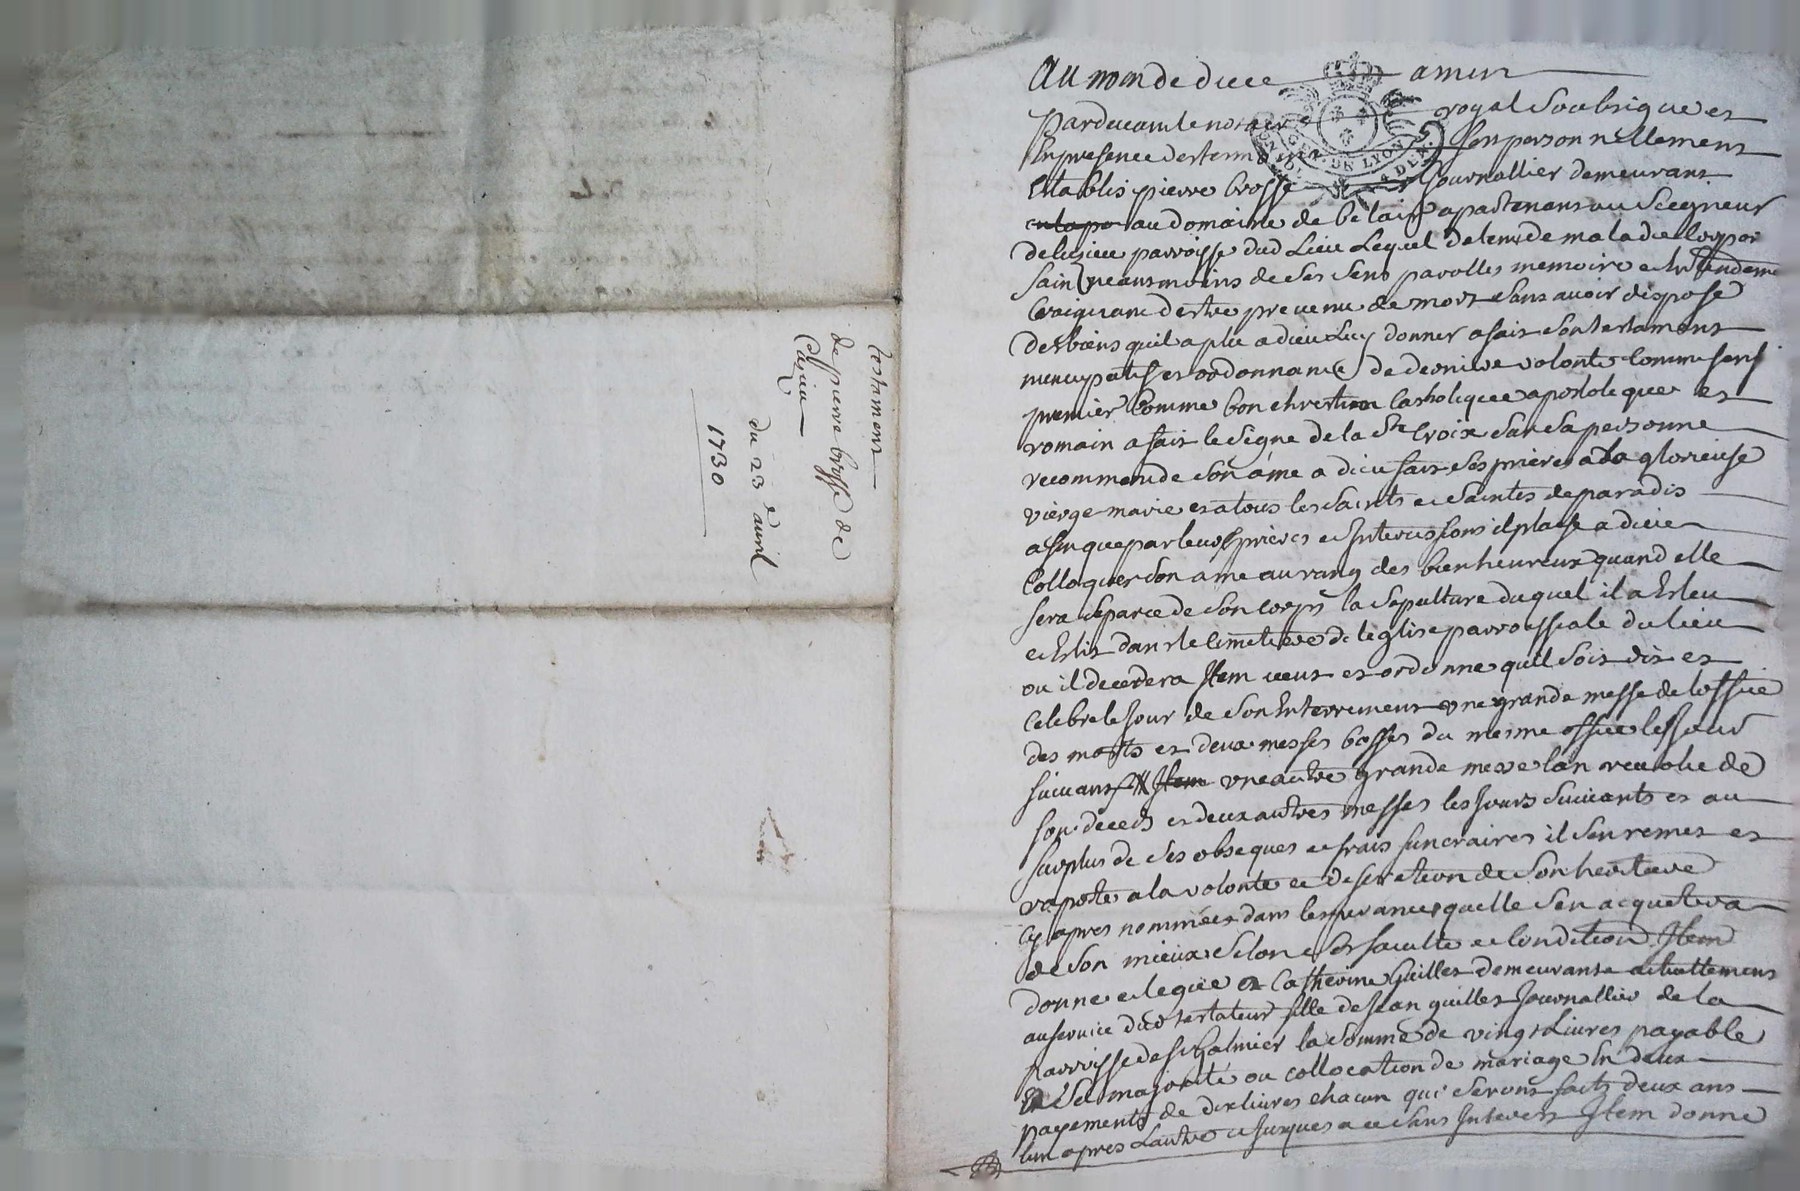 Testament
de pierre brosse de
Cusieu
du 23e avril
1730
Au nom de dieu amen
Pardevant le notaire royal Soubsigne et
En presence des temoins Son personnellement
Etablis pierre brosse Journallier demeurant
au domaine de belair apartenant au Seegneur
de Cusieu parroisse dud Lieu Lequel detenu de maladie Corpor
Sain neantmoins de Ses Sens parolles memoire et Entendeme
Craignant d'estre prevenu de mort Sans avoir dispose
des biens quil a plu a dieu Luy donner a fait Son testament
nuncupatif et ordonnance de derniere volonte Comme sensi
premier Comme bon chrestien Catholique apostolique et
romain a fait le Signe de la Ste Croix Sur Sa personne
recommande Son ame a dieu fait Ses prieres a La glorieuse
vierge marie et a tous les Saints et Saintes de paradis
afin que par leurs prieres et Intercessions il plaise a dieu
Colloquer Son ame au rang des bienheureux quand elle
Sera Separee de Son Corps la Sepulture duquel il a Esleu
et Eslit dans le Cimetiere de leglise parroissiale du lieu
ou il decedera Item veut et ordonne quil Soit dit et
Celebre le Jour de Son Enterrement une grande messe de loffice
des morts et deux messes basses du mesme office les Jours
Suivants Item une autre grande messe lan revolu de
Son deceds et deux autres messes les Jours Suivants et au
Surplus de Ses obseques et frais funeraires il Sen remet et
raporte a la volonte et discretion de Son heritiere
Cy apres nommée dans lesperance quelle Sen acquitera
de Son mieux Selon Ses faculte et Condition Item
donne et legue a Catherine guillet demeurante actuellement
au Service dud testateur fille de Jean guillet Journallier de la
Parroisse de St galmier la Somme de vingt Livres payable
En Sa majorité ou collocation de mariage En deux
payements de dix livres chacun qui Seront faits deux ans
lun apres Lautre et Jusques a ce Sans Interets Item donne